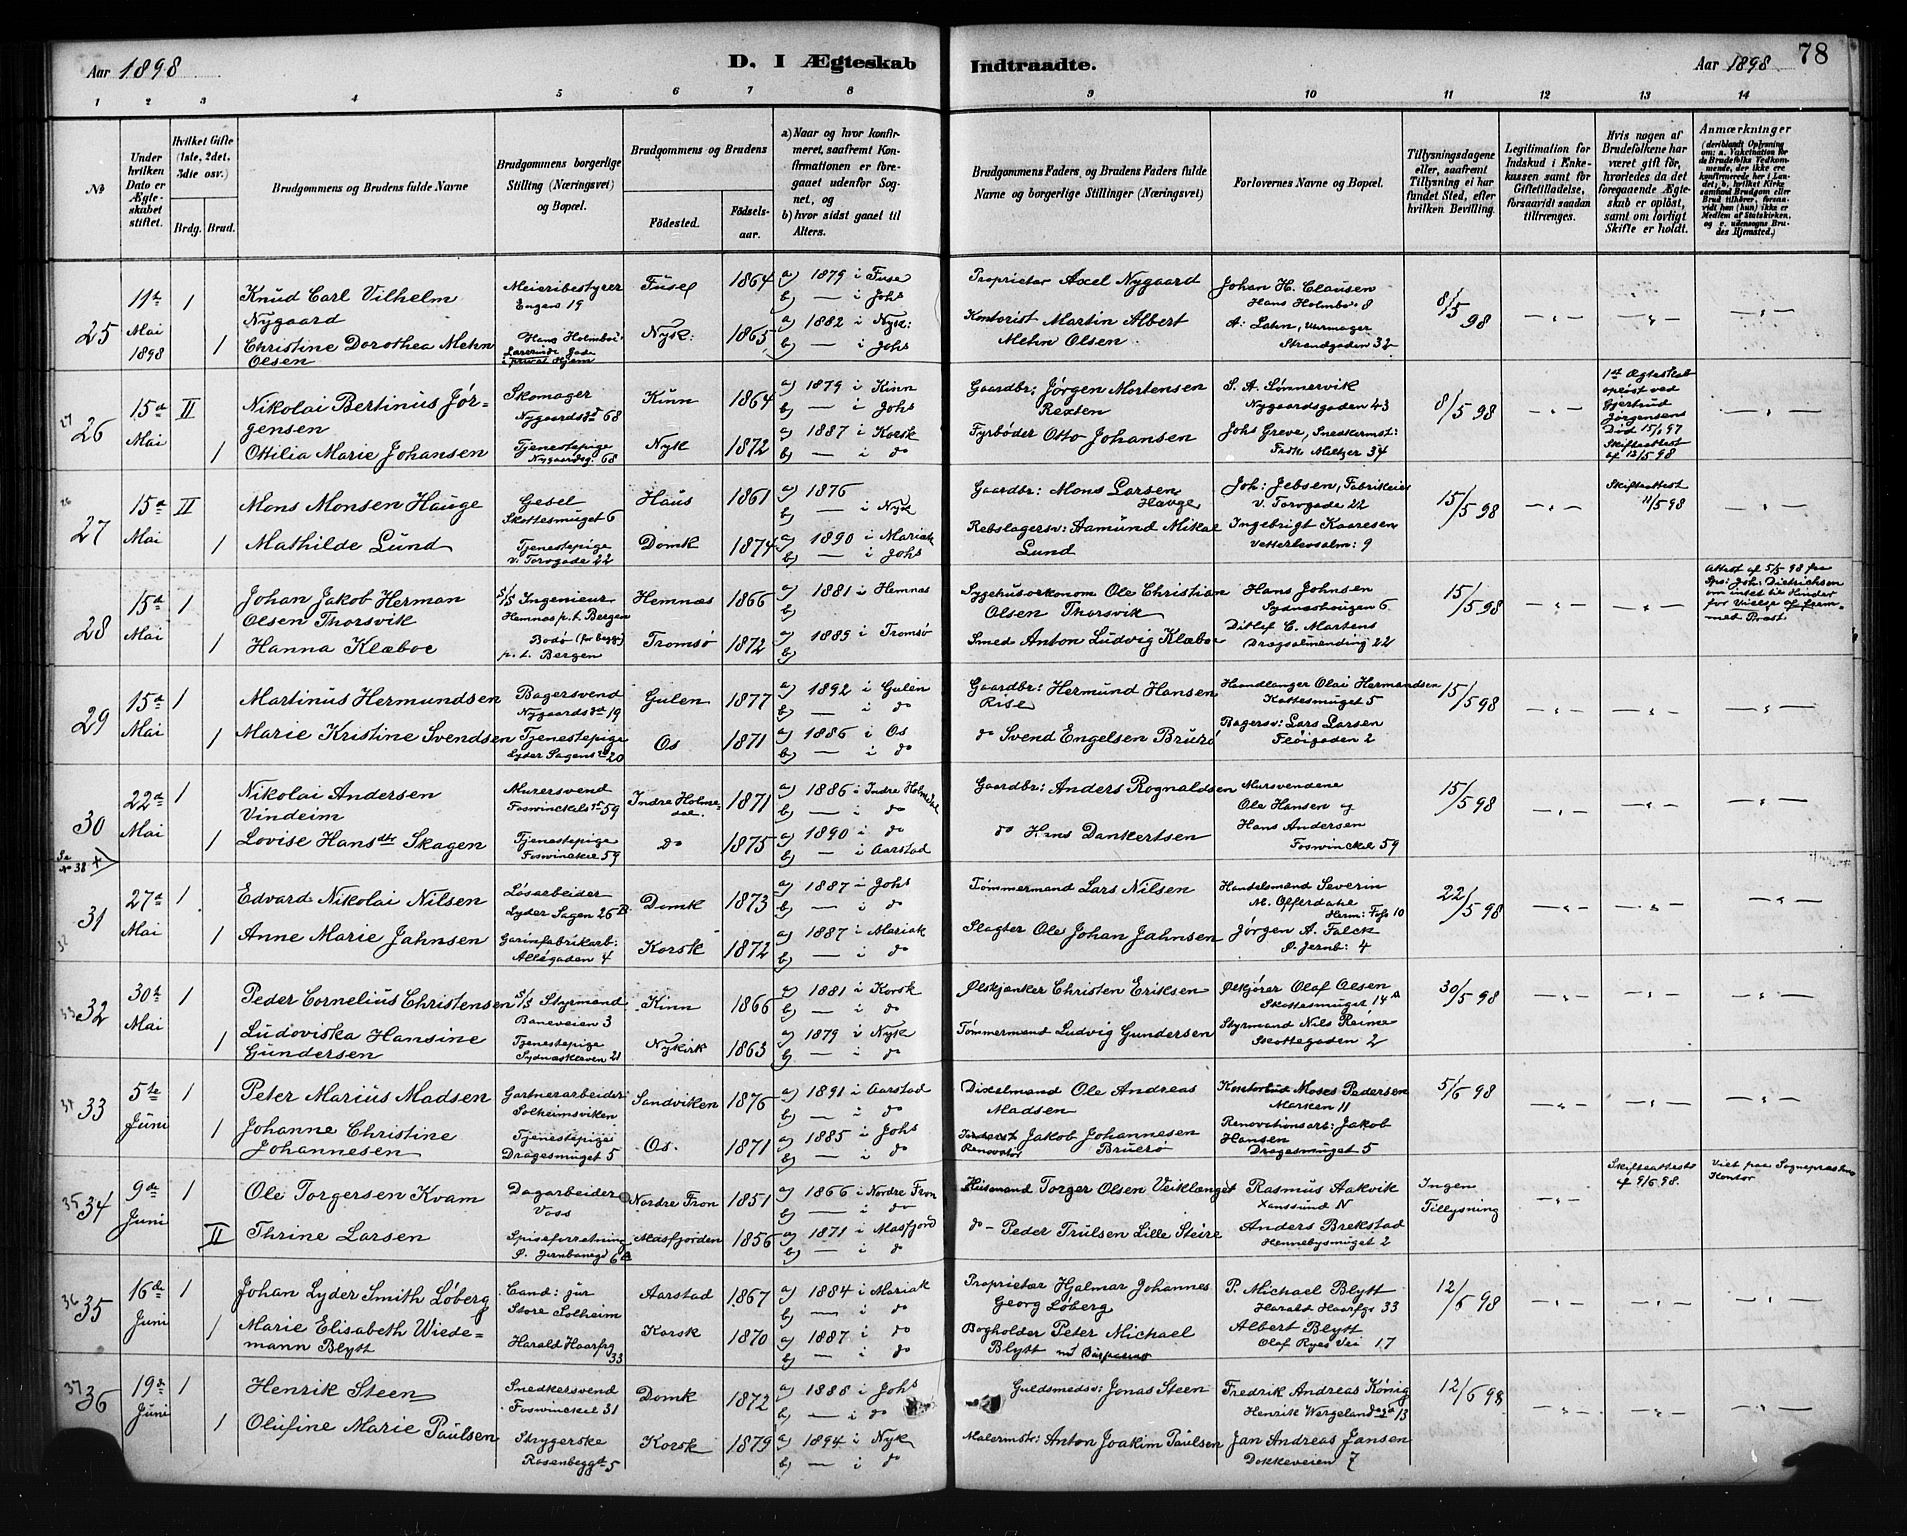 Aar 1898 D. I Ægteskab Indtraadte. Aar 1898 78
1 2 3 4 5 6 7 8 9 10 11 12 13 14
No
Under hvilken Dato er Ægteskabet stiftet.
Hvilket Gifte (1ste, 2det, 3die osv.)
Brdg. Brud.
Brudgommens og Brudens fulde Navne
Brudgommens borgerlige Stilling (Næringsvei) og Bopæl.
Brudgommens og Brudens
Fødested. Fødselsaar.
a) Naar og hvor konfirmeret, saafremt Konfirmationen er foregaaet udenfor Sognet, og
b) hvor sidst gaaet til Alters.
Brudgommens Faders og Brudens Faders fulde Navne og borgerlige Stillinger (Næringsvei)
Forlovernes Navne og Bopæl.
Tillysningsdagene eller, saafremt Tillysning ei har fundet Sted, efter hvilken Bevilling.
Legitimation for Indskud i Enkekassen samt for Giftetilladelse, forsaavidt saadan tiltrænges.
Hvis nogen af Brudefolkene har været gift før, hvorledes da det foregaaende Ægteskab er opløst, samt om lovligt Skifte er holdt.
Anmærkninger (deriblandt Oplysning om: a. Vakcination for de Brudefolks Vedkommende, der ikke ere konfirmerede her i Landet; b. hvilket Kirkesamfund Brudgom eller Brud tilhører, forsaavidt han (hun) ikke er Medlem af Statskirken, og c. udensogns Brudes Hjemsted.)
25 11te Mai 1898 1 Knud Carl Vilhelm Nygaard Meieribestyrer Engens 19 Fuse 1864 a) 1879 i Fuse b) — i Johs Proprietær Axel Nygaard Johan H. Clausen Hans Holmboe 8 8/5 98
1 Christine Dorothea Mehn Olsen Hans Holmboe Gade Lærerinde i privat Hjem Nyk: 1865 a) 1882 i Nyk: b) — i Johs Kontorist Martin Albert Mehn Olsen A: Lahn, Strandgaden 32
26 15de Mai II Nikolai Bertinus Jørgensen Skomager Nygaardsgt 68 Kinn 1864 a) 1879 i Kinn b) — i Johs Gaardbr: Jørgen Mortensen Rexten S. A. Lømmervik Nygaardsgaden 43 8/5 98 1st Ægteskab opløst ved Gjertrud Jørgensens Død 15/1 97 Skifteattest af 12/5 98
1 Ottilia Marie Johansen Tjenestepige Nygaardsg. 68 Nyk 1872 a) 1887 i Korsk b) — i do Fyrbøder Otto Johansen Johs Greve, Snedkermst: Fredk Meltzer 34
27 15de Mai II Mons Monsen Hauge Gesel Skottesmuget 6 Haus 1861 a) 1876 b) — i Nyk Gaardbr: Mons Larsen Hauge Joh: Jebsen, Fabrikeier V. Torvgade 22 15/5 98 Skifteattest 11/5 98
1 Mathilde Lund Tjenestepige V. Torvgade 22 Domk 1874 a) 1890 i Mariak b) — i Johs Rebslagersv: Aamund Mikal Lund Ingebrigt Kaaresen Vetterlevsalm: 9
28 15de Mai 1 Johan Jakob Herman Olsen Thorsvik S/S Ingeniør Hemnæs p.t. Bergen Hemnæs 1866 a) 1881 i Hemnæs b) Sygehusøkonom Ole Christian Olsen Thorsvik Hans Johnsen Sydneshaugen 6 15/5 98 Attest af 5/5 98 fra Sps: Joh: Dietrichsen om intet til Hinder for Vielse af fremmed Præst.
1 Hanna Klæboe Bodø (for begge) p.t. Bergen Tromsø 1872 a) 1889 i Tromsø b) Smed Anton Ludvig Klæboe Ditlef C. Martens Dragealmending 22
29 15de Mai 1 Martinus Hermundsen Bagersvend Nygaardsgt 19 Gulen 1877 a) 1892 i Gulen b) — i do Gaardbr: Hermund Hansen Rise Haandlanger Olai Hermandsen Kottesmuget 5 15/5 98
1 Marie Kristine Svendsen Tjenestepige Lyder Sagensgt 20 Os 1871 a) 1886 i Os b) — i do do Svend Engelsen Bruerø Bagersv: Lars Larsen Fløigaden 2
30 22de Mai 1 Nikolai Andersen Vindeim Murersvend Foswinckelsgt 59 Indre Holmedal. 1871 a) 1886 i Indre Holmedal b) — i do Gaardbr: Anders Rognaldsen Mursvendene Ole Hansen og Hans Andersen Foswinckel 59 15/5 98
1 Lovise Hansdtr Skagen Tjenestepige Foswinckel 59 do 1875 a) 1890 i do b) — i Aarstad do Hans Dankertsen
Se No 38 +
31 27de Mai 1 Edvard Nikolai Nilsen Løsarbeider Lyder Sagen 26B Domk 1873 a) 1887 i Johs b) — i do Tømmermand Lars Nilsen Handelsmand Severin M. Offerdahl Herm: Foss 10 22/5 98
1 Anne Marie Jahnsen Garnfabrikarb: Allégaden 4 Korsk 1872 a) 1887 i Mariak b) — i do Slagter Ole Johan Jahnsen Jørgen A. Falck Ø. Jernb: 4
32 30te Mai 1 Peder Cornelius Christensen S/S Styrmand Baneveien 3 Kinn 1866 a) 1881 i Korsk b) — i do Ølskjænker Christen Eriksen Ølkjører Olaf Olsen Skottesmuget 14A 30/5 98
1 Ludoviska Hansine Gundersen Tjenestepige Sydnæskleven 21 Nykirk 1863 a) 1879 i Nyk b) — i do Tømmermand Ludvig Gundersen Styrmand Nils Reime Skottegaden 2
33 5te Juni 1 Peter Marius Madsen Gartnerarbeider Solheimsviken Sandviken 1876 a) 1891 i Aarstad b) — i do Dixelmand Ole Andreas Madsen Kontorbud Moses Pedersen Marken 11 5/6 98
1 Johanne Christine Johannesen Tjenestepige Dragesmuget 5 Os. 1871 a) 1885 i Johs b) — i do Renovatør Jakob Johannesen Bruerø Renovationsarb: Jakob Hansen Dragesmuget 5
34 9de Juni 1 Ole Torgersen Kvam Dagarbeider Voss Nordre Fron 1851 a) 1866 i Nordre Fron b) — i do Husmand Torger Olsen Veiklænget Rasmus Aakvik Xanssund N Ingen Tillysning Skifteattest af 9/6 98. Viet paa Sognepræstens Kontor
II Thrine Larsen Spiseforretning Ø. Jernbanegd 6B Masfjorden 1856 a) 1871 i Masfjord b) — i do do — Peder Trulsen Lille Steire Anders Brekstad Hennebysmuget 2
35 16de Juni 1 Johan Lyder Smith Løberg Cand: jur Store Solheim Aarstad 1867 a) 1884 i Mariak b) — i do Proprietær Hjalmar Johannes Georg Løberg P. Michael Blytt Harald Haarfgr 33 12/6 98
1 Marie Elisabeth Wiedemann Blytt Harald Haarfrg 33 Korsk 1870 a) 1887 i do b) — i do Bogholder Peter Michael Blytt Albert Blytt Olaf Ryes Vei 17
36 19de Juni 1 Henrik Steen Snedkersvend Foswinckel 31 Domk 1872 a) 1888 i Johs b) — i do Guldsmedsv: Jonas Steen Fredrik Andreas König Henrik Wergelandsgt 13 12/6 98
1 Olufine Marie Paulsen Strygerske Rosenbeggt 5 Korsk 1879 a) 1894 i Nyk b) — i do Malermstr: Anton Joakim Paulsen Jan Andreas Jansen Dokkeveien 7